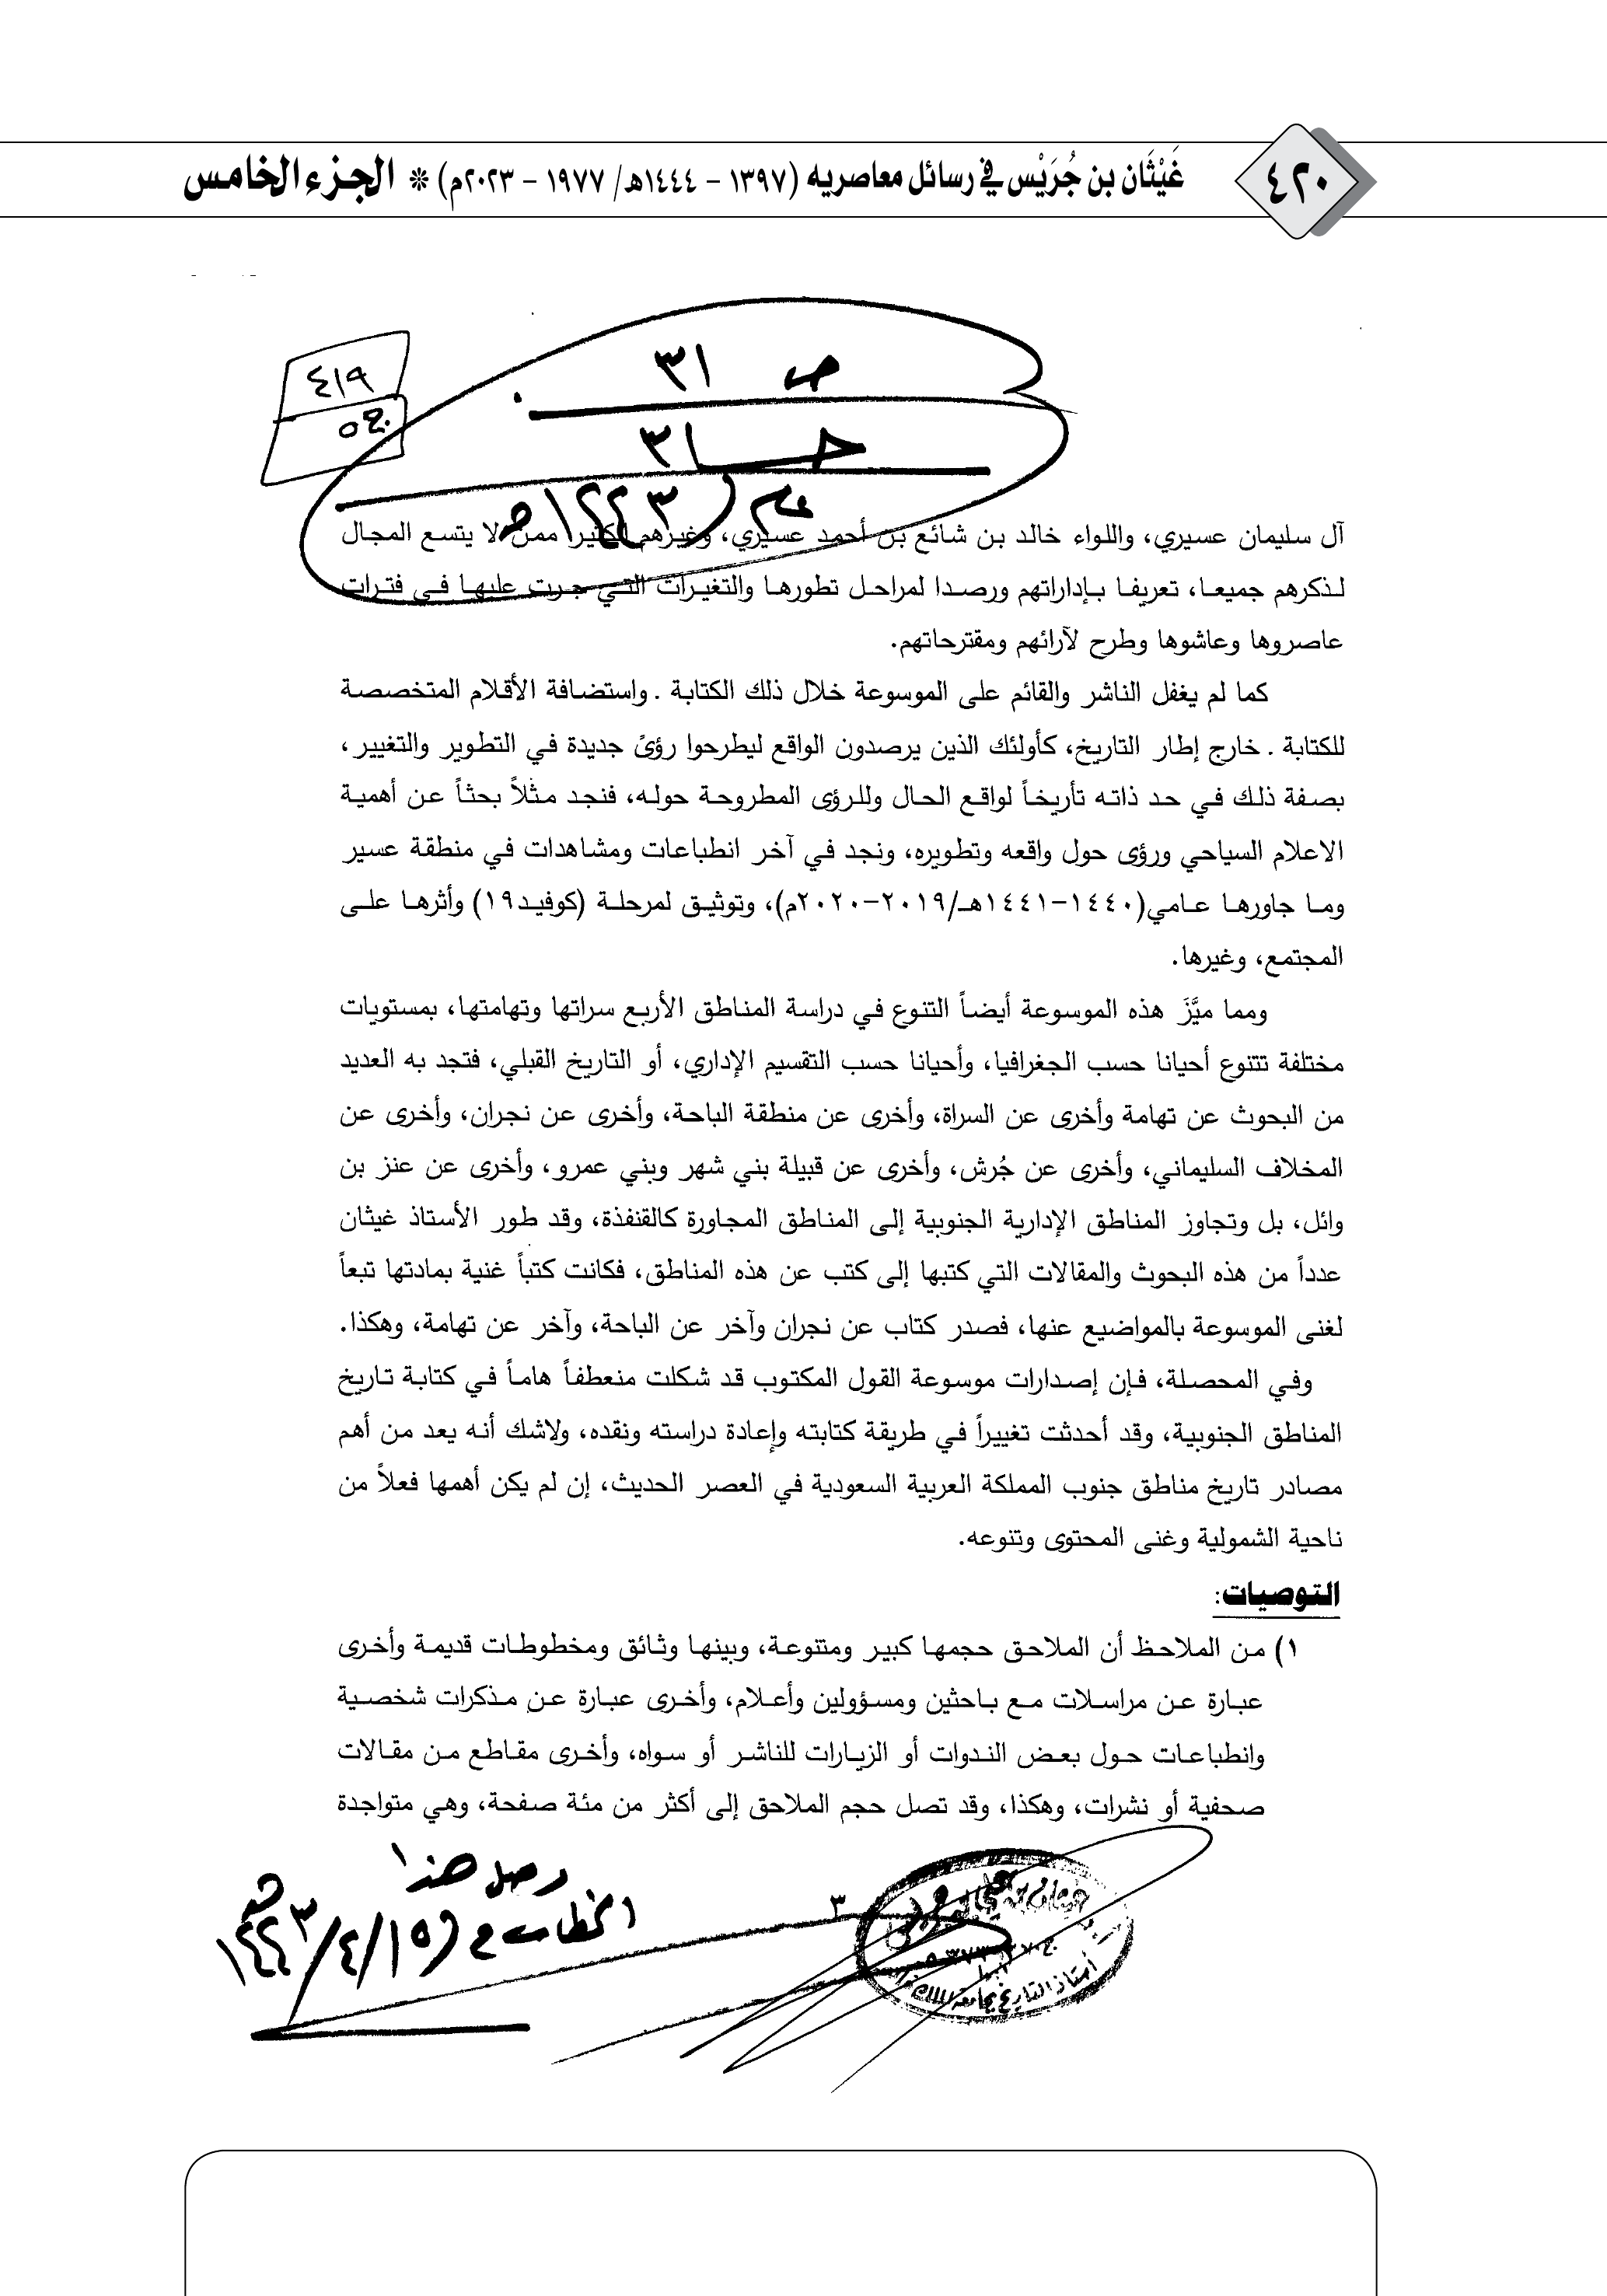 ٤٢٠
غَيْثَان بن جُرَيْس في رسائل معاصريه (١٣٩٧ - ١٤٤٤هـ/ ١٩٧٧ - ٢٠٢٣م) * الجزء الخامس
ص ٣١
٤١٩
ج٥
حـ ٣١
عام ١٤٤٣هـ
آل سليمان عسيري، واللواء خالد بن شائع بن أحمد عسيري، وغيرهم الكثير ممن لا يتسع المجال
لذكرهم جميعا، تعريفا بإداراتهم ورصدا لمراحل تطورها والتغيرات التي جرت عليها في فترات
عاصروها وعاشوها وطرح لآرائهم ومقترحاتهم.
كما لم يغفل الناشر والقائم على الموسوعة خلال ذلك الكتابة . واستضافة الأقلام المتخصصة
للكتابة . خارج إطار التاريخ، كأولئك الذين يرصدون الواقع ليطرحوا رؤىً جديدة في التطوير والتغيير،
بصفة ذلك في حد ذاته تأريخاً لواقع الحال وللرؤى المطروحة حوله، فنجد مثلاً بحثاً عن أهمية
الاعلام السياحي ورؤى حول واقعه وتطويره، ونجد في آخر انطباعات ومشاهدات في منطقة عسير
وما جاورها عامي(١٤٤٠-١٤٤١هـ/٢٠١٩-٢٠٢٠م)، وتوثيق لمرحلة (كوفيد١٩) وأثرها على
المجتمع، وغيرها.
ومما ميَّزَ هذه الموسوعة أيضاً التنوع في دراسة المناطق الأربع سراتها وتهامتها، بمستويات
مختلفة تتنوع أحيانا حسب الجغرافيا، وأحيانا حسب التقسيم الإداري، أو التاريخ القبلي، فتجد به العديد
من البحوث عن تهامة وأخرى عن السراة، وأخرى عن منطقة الباحة، وأخرى عن نجران، وأخرى عن
المخلاف السليماني، وأخرى عن جُرش، وأخرى عن قبيلة بني شهر وبني عمرو، وأخرى عن عنز بن
وائل، بل وتجاوز المناطق الإدارية الجنوبية إلى المناطق المجاورة كالقنفذة، وقد طور الأستاذ غيثان
عدداً من هذه البحوث والمقالات التي كتبها إلى كتب عن هذه المناطق، فكانت كتباً غنية بمادتها تبعاً
لغنى الموسوعة بالمواضيع عنها، فصدر كتاب عن نجران وآخر عن الباحة، وآخر عن تهامة، وهكذا.
وفي المحصلة، فإن إصدارات موسوعة القول المكتوب قد شكلت منعطفاً هاماً في كتابة تاريخ
المناطق الجنوبية، وقد أحدثت تغييراً في طريقة كتابته وإعادة دراسته ونقده، ولاشك أنه يعد من أهم
مصادر تاريخ مناطق جنوب المملكة العربية السعودية في العصر الحديث، إن لم يكن أهمها فعلاً من
ناحية الشمولية وغنى المحتوى وتنوعه.
التوصيات:
١) من الملاحظ أن الملاحق حجمها كبير ومتنوعة، وبينها وثائق ومخطوطات قديمة وأخرى
عبارة عن مراسلات مع باحثين ومسؤولين وأعلام، وأخرى عبارة عن مذكرات شخصية
وانطباعات حول بعض الندوات أو الزيارات للناشر أو سواه، وأخرى مقاطع من مقالات
صحفية أو نشرات، وهكذا، وقد تصل حجم الملاحق إلى أكثر من مئة صفحة، وهي متواجدة
وصل هذا
الخطاب في (١٥/٤/١٤٤٣هـ
٣
أستاذ التاريخ بجامعة الملك خالد